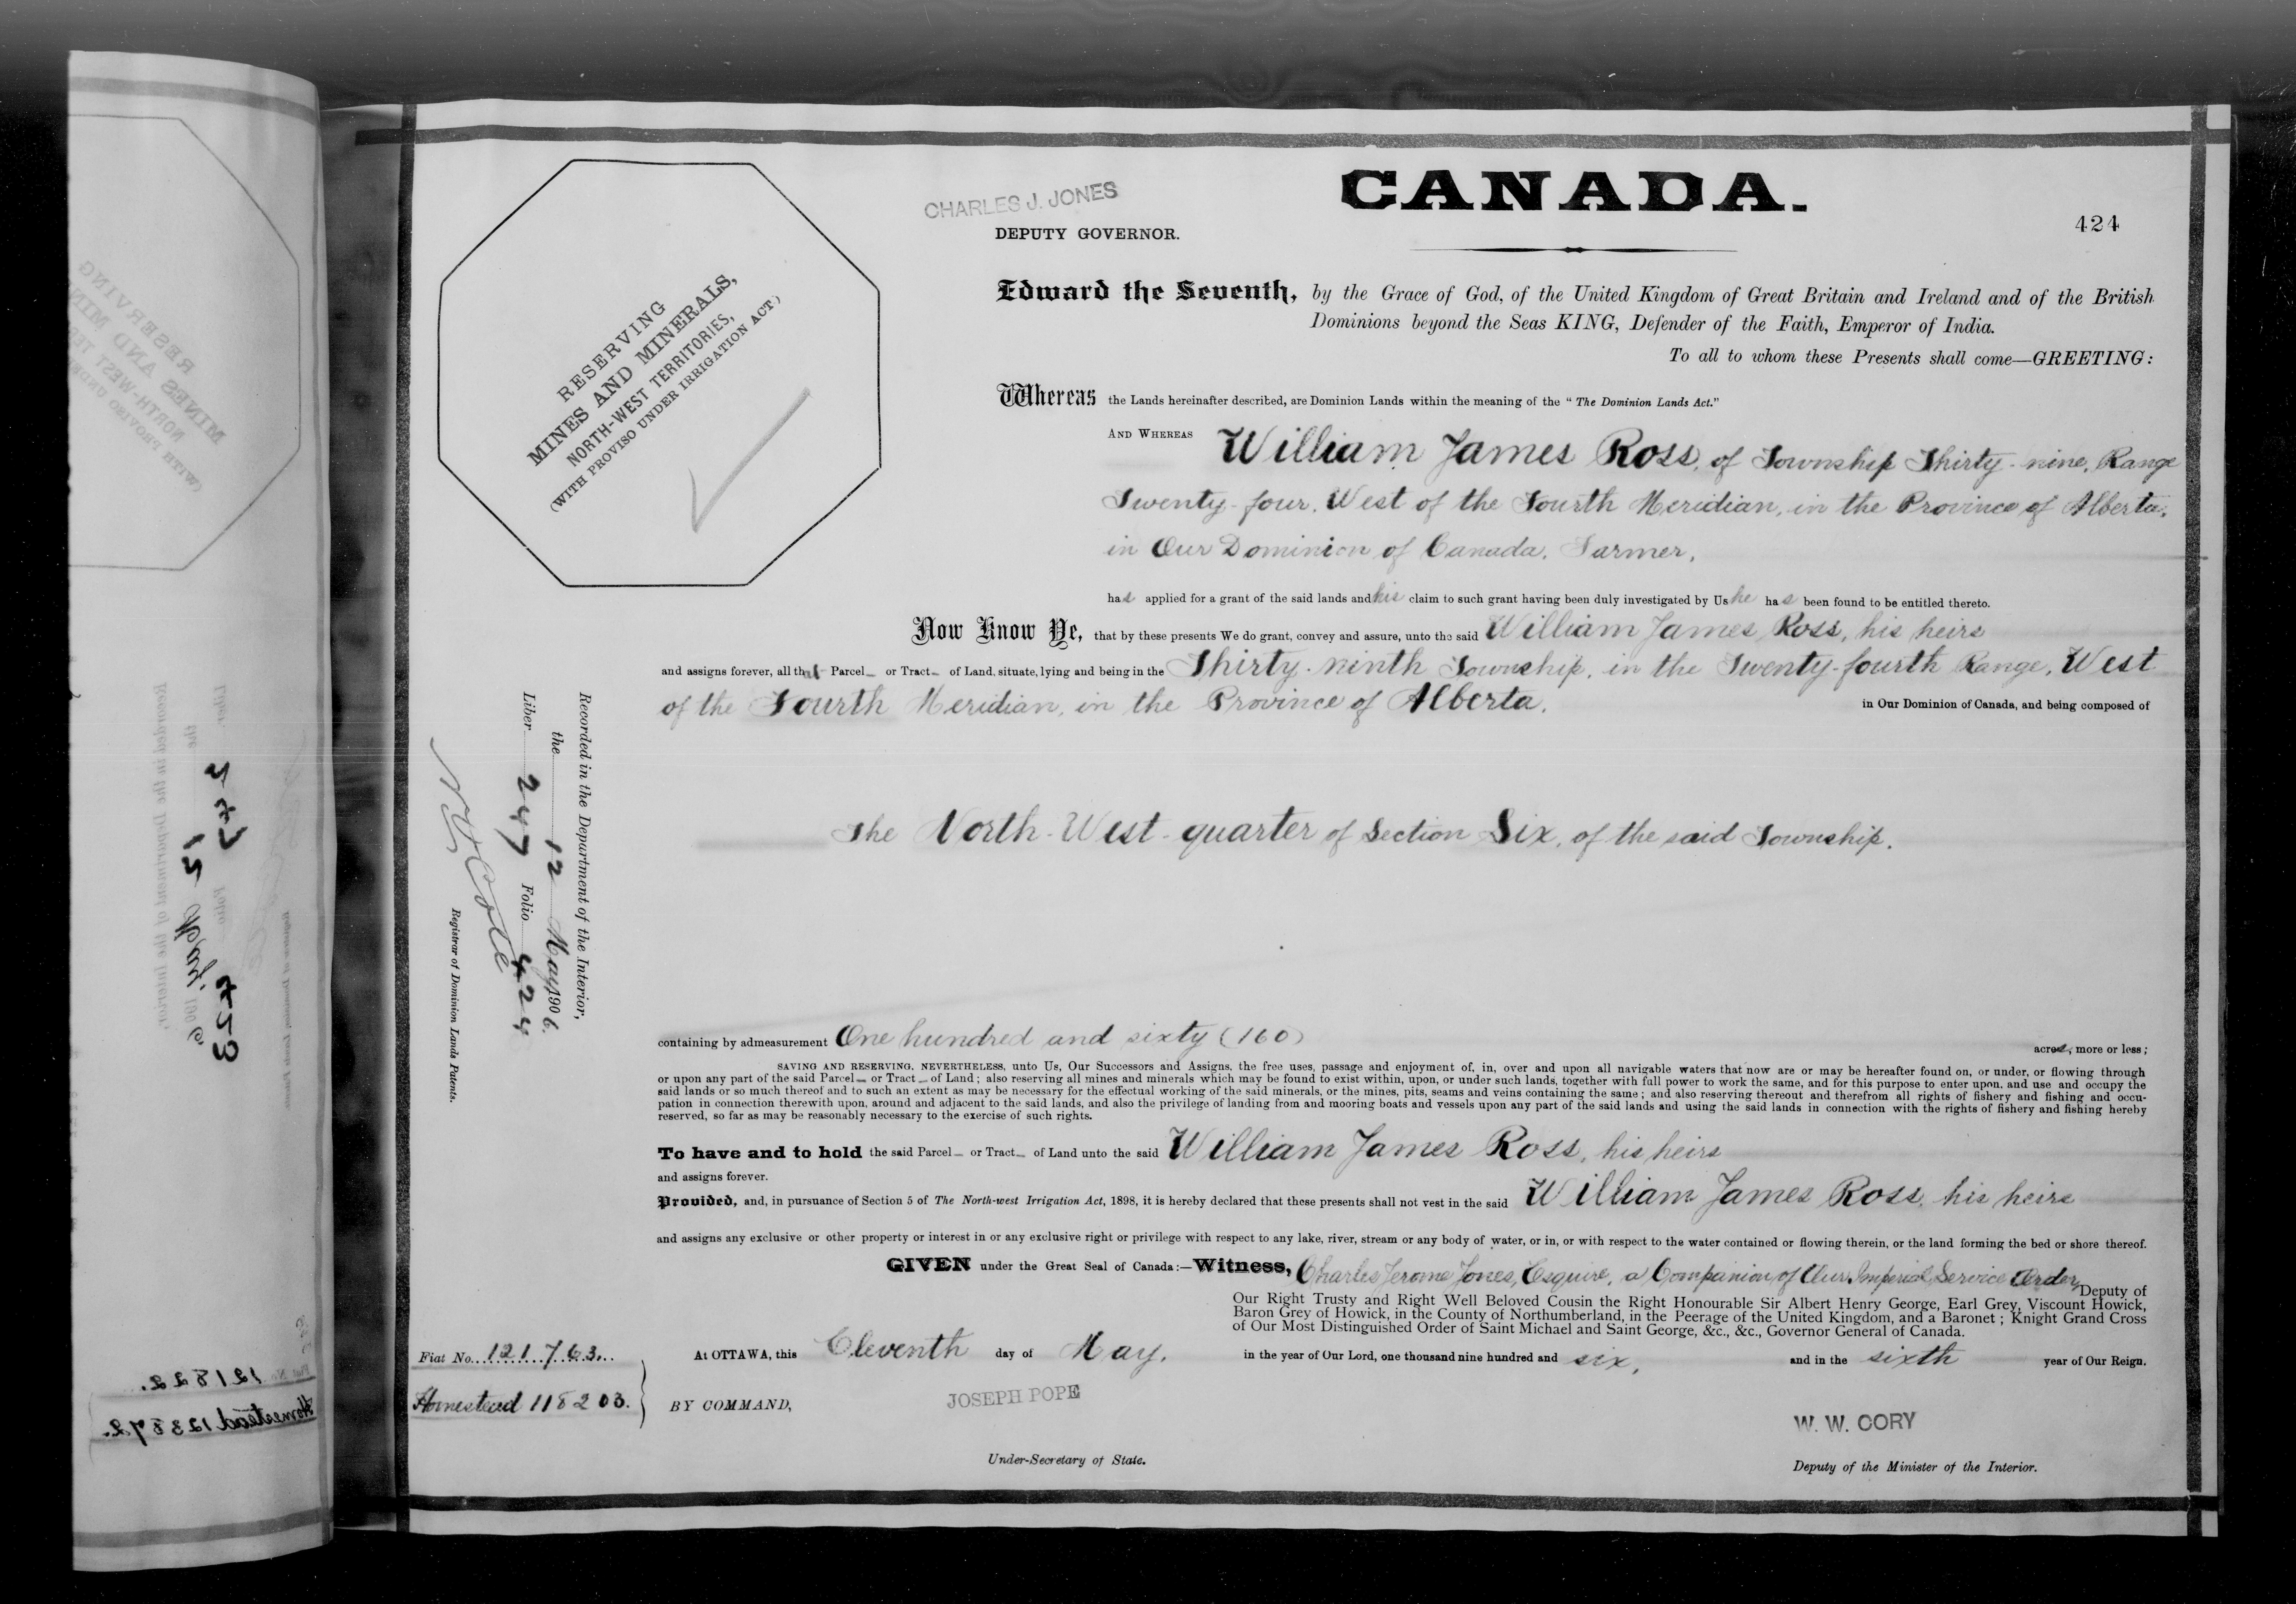 CANADA.
424
CHARLES J. JONES
DEPUTY GOVERNOR.
RESERVING
MINES AND MINERALS,
NORTH-WEST TERRITORIES,
(WITH PROVISO UNDER IRRIGATION ACT.)
Edward the Seventh, by the Grace of God, of the United Kingdom of Great Britain and Ireland and of the British
Dominions beyond the Seas KING, Defender of the Faith, Emperor of India.
To all to whom these Presents shall come—GREETING:
Whereas the Lands hereinafter described, are Dominion Lands within the meaning of the "The Dominion Lands Act."
AND WHEREAS William James Ross, of Township Thirty-nine, Range
Twenty-four, West of the Fourth Meridian, in the Province of Alberta,
in Our Dominion of Canada, Farmer,
has applied for a grant of the said lands and his claim to such grant having been duly investigated by Us he has been found to be entitled thereto.
Now Know Ye, that by these presents We do grant, convey and assure, unto the said William James Ross, his heirs
and assigns forever, all that Parcel or Tract of Land, situate, lying and being in the Thirty-ninth Township, in the Twenty-fourth Range, West
of the Fourth Meridian, in the Province of Alberta, in Our Dominion of Canada, and being composed of
The North-West-quarter of Section Six, of the said Township.
containing by admeasurement One hundred and sixty (160) acres, more or less;
SAVING AND RESERVING, NEVERTHELESS, unto Us, Our Successors and Assigns, the free uses, passage and enjoyment of, in, over and upon all navigable waters that now are or may be hereafter found on, or under, or flowing through
or upon any part of the said Parcel or Tract of Land; also reserving all mines and minerals which may be found to exist within, upon, or under such lands, together with full power to work the same, and for this purpose to enter upon, and use and occupy the
said lands or so much thereof and to such an extent as may be necessary for the effectual working of the said minerals, or the mines, pits, seams and veins containing the same; and also reserving thereout and therefrom all rights of fishery and fishing and occu-
pation in connection therewith upon, around and adjacent to the said lands, and also the privilege of landing from and mooring boats and vessels upon any part of the said lands and using the said lands in connection with the rights of fishery and fishing hereby
reserved, so far as may be reasonably necessary to the exercise of such rights.
To have and to hold the said Parcel or Tract of Land unto the said William James Ross, his heirs
and assigns forever.
Provided, and, in pursuance of Section 5 of The North-west Irrigation Act, 1898, it is hereby declared that these presents shall not vest in the said William James Ross, his heirs
and assigns any exclusive or other property or interest in or any exclusive right or privilege with respect to any lake, river, stream or any body of water, or in, or with respect to the water contained or flowing therein, or the land forming the bed or shore thereof.
GIVEN under the Great Seal of Canada:—Witness, Charles Jerome Jones, Esquire, a Companion of Our Imperial Service Order, Deputy of
Our Right Trusty and Right Well Beloved Cousin the Right Honourable Sir Albert Henry George, Earl Grey, Viscount Howick,
Baron Grey of Howick, in the County of Northumberland, in the Peerage of the United Kingdom, and a Baronet; Knight Grand Cross
of Our Most Distinguished Order of Saint Michael and Saint George, &c., &c., Governor General of Canada.
At OTTAWA, this Eleventh day of May, in the year of Our Lord, one thousand nine hundred and six, and in the sixth year of Our Reign.
BY COMMAND,
JOSEPH POPE
Under-Secretary of State.
W. W. CORY
Deputy of the Minister of the Interior.
Fiat No. 121763.
Homestead 118203.
Recorded in the Department of the Interior,
the 12 May 1906.
Liber 247 Folio 424
N O Coté
Registrar of Dominion Lands Patents.
RESERVING
MINES AND MIN
NORTH-WEST TE
(WITH PROVISO UNDE
Recorded in the Department of the Interior,
the 12 May 1906
Liber 247 Folio 423
Fiat No. 121822.
Homestead 123872.